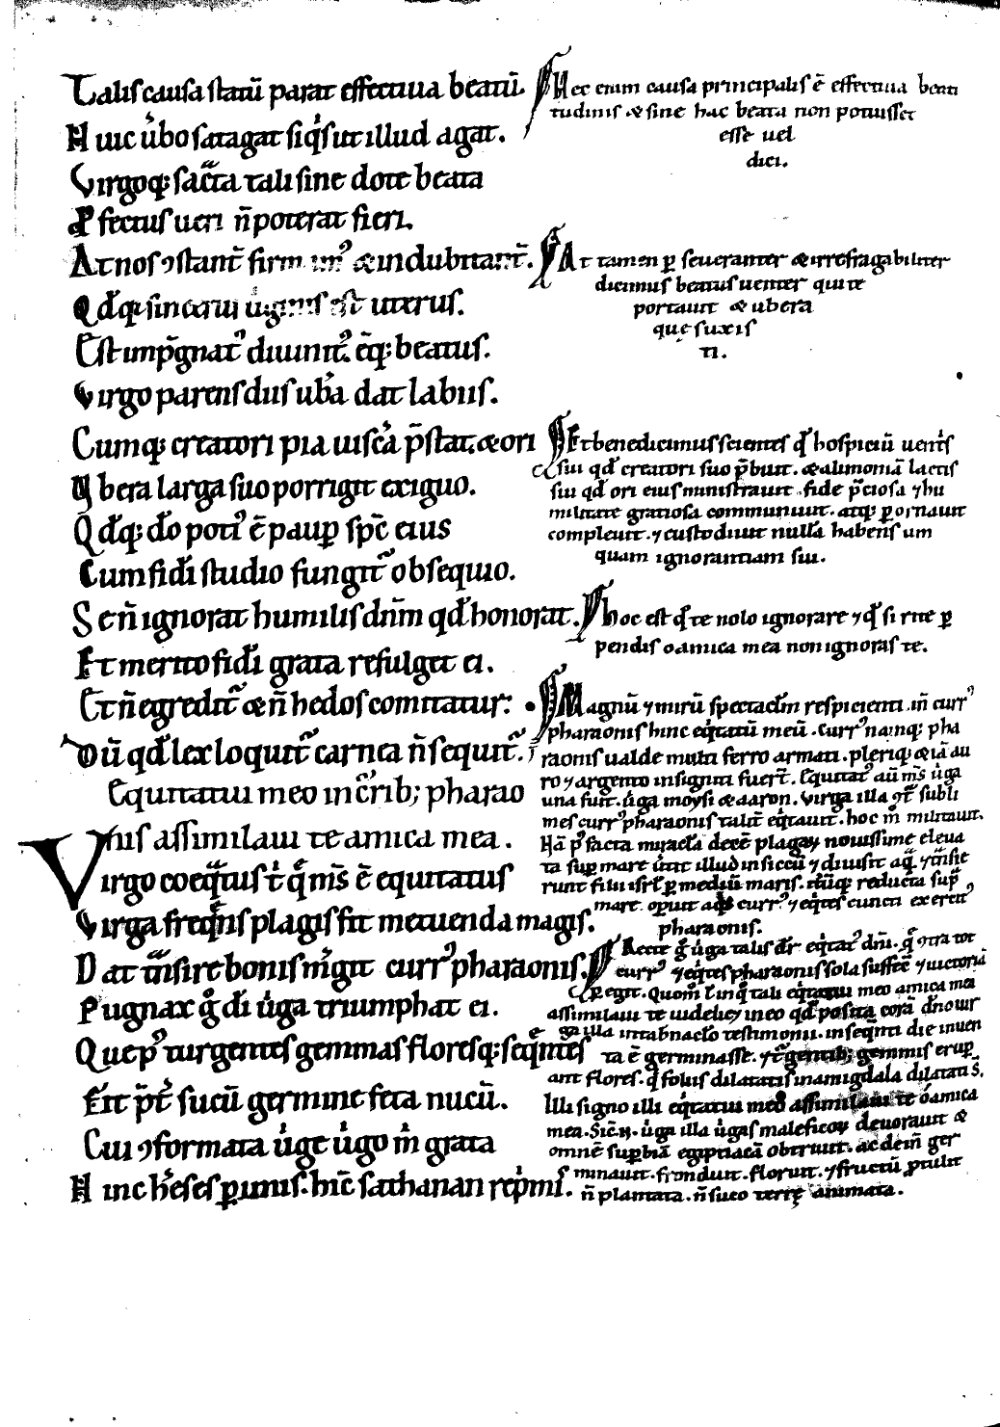 Talis causa statū parat effectiua beatū.
Huic ůbo satagat siq̇s ut illud agat.
Virgoq; sac̄ta tali sine dote beata
P̱fectus ueri n̄ poterat fieri.
At nos ꝯstant̄ firm &indubitant̄.
Qd̄q; sinceri uiginis est uterus.
Est imp̄gnat᾽ diuinit᾽ ēq; beatus.
Virgo parens dūs ub̄a dat labiis.
Cumq; creatori pia uisc̄a p̄stat. &ori
Vbera larga suo porrigit exiguo.
Qd̄q; do̅ poti᾽ ē paup̱ sp̄c eius
Cum fidi studio fungit᾽ obsequio.
Se n̄ ignorat humilis dn̄m qd̄ honorat.
Et merito fidi grata refulget ei.
Et n̄ egredit᾽ & n̄ hedos comitatur:
Dū qd̄ lex loquit᾽ carnea n̄ sequit᾽.
Equitatui meo in crib; pharao
nis assimilaui te amica mea.
Virgo coeq̄tus t̄ q̄ m̄s ē equitatus
Virga freq̄ns plagis fit metuenda magis.
Dat t̄nsire bonis m̄git curr᾽ pharaonis.
Pugnax g̊ di ůga triumphat ei.
Que p᾽ turgentes gemmas floresq; seq̄ntes
Erit p̄t sucū germine feta nucū.
Cui ꝯformata ůge ůgo m̄ grata
Hinc h̄eses p̱imus. hīc sathanan rep̄mis.
Hec enim causa principalis ē effectiua beati
tudinis & sine hac beata non potuisset
esse uel
dici.
At tamen p̱seueranter & irrefragabiliter
dicimus beatus uenter qui te
portauit & ubera
que suxis
ti.
Et benedicimus scientes qd̄ hospiciū uent̄s
sui qd̄ creatori suo p̄buit. & alimoniā lactis
sui qd̄ ori eius ministrauit. fide p̄ciosa ⁊ hu
militate gratiosa communiuit. atq; p̱ornauit
compleuit. ⁊ custodiuit nullā habens um
quam ignorantiam sui.
hoc est qd̄ te nolo ignorare ⁊ qd̄ si rite p̱
pendis o amica mea non ignoras te.
Magnū ⁊ mirū spectaclm respicienti. in curr᾽
pharaonis hinc eq̇tatū meū. curr᾽ nanq; pha
raonis ualde multi ferro armati. pleriq; & iā au
ro ⁊ argento insigniti fuert̄. Equitat᾽ aū m̄s ůga
una fuit. ůga moysi & aaron. virga illa ꝯt̄ subli
mes curr᾽ pharaonis talit̄ eq̇tauit. hoc m̄ militauit.
Nā p᾽ facta miracla decē plagaꝝ nouissime eleua
ta sup̱ mare ūtit illud in siccū ⁊ diuisit aq̄ ⁊ t̄nsie
runt filii isrl̄ p̱ mediū maris. itūq; reducta sup̱
mare. opuit aq̄ curr᾽ ⁊ eq̇tes cuncti exercit᾽
pharaonis.
Recte g̊ ůga talis dr̄ eq̇tat᾽ dn̄i. q̄ ꝯtra tot
curr᾽ ⁊ eq̇tes pharaonis sola suffec̄ ⁊ uictoriā
p̱egit. Quom̊ t̄ in q̊ tali eq̇tatui meo amica mea
assimilaui te uidelic⁊ in eo qd̄ posita corā dn̄o uir
ga illa in tabnaclo testimonii. in seq̄nti die inuen
ta ē germinasse. ⁊ t̄gentib; gemmis erup̱
ant flores. q̄ foliis dilatatis in amigdala dilatati s̄.
Illi signo illi eq̇tatui meo assimilaui te o amica
mea. Sic̄ n. ůga illa ůgas maleficoꝝ deuorauit &
omnē sup̱biā egiptiacā obtriuit. ac dem̄ ger
minauit. fronduit. floruit. ⁊ fructū p̱tulit
n̄ plantata. n̄ suco terrę animata.